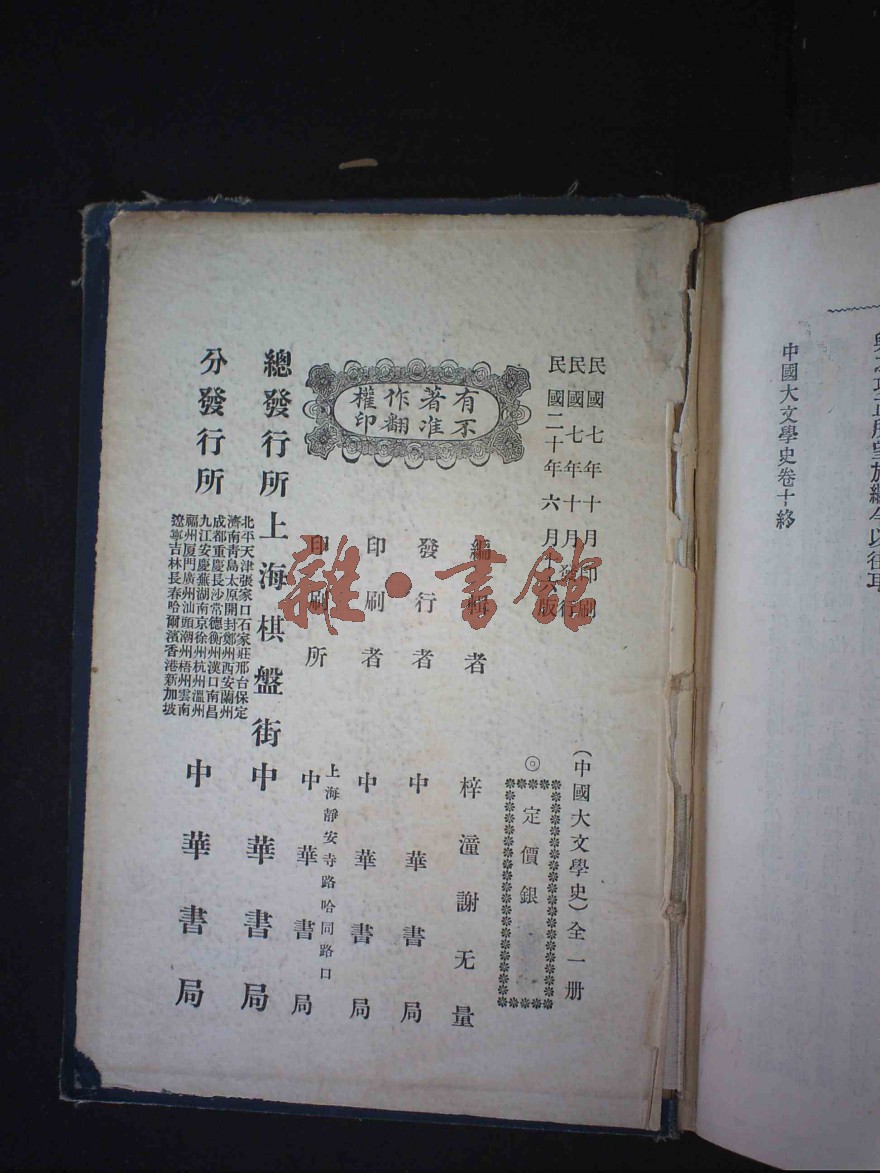 民國七年十月印刷
民國七年十月發行
民國二十年六月十六版
(中國大文學史)全一册
◎定價銀
有著作權
不准翻印
編輯者 梓潼謝无量
發行者 中華書局
印刷者 中華書局
上海靜安寺路哈同路口
印刷所 中華書局
總發行所 上海棋盤街 中華書局
分發行所
北平天津張家口石家莊邢台保定
濟南青島太原開封鄭州西安蘭州
成都重慶長沙常德衡州漢口南昌
九江安慶蕪湖南京徐州杭州溫州
福州厦門廣州汕頭潮州梧州雲南
遼寧吉林長春哈爾濱香港新加坡
中華書局
中國大文學史卷十終
雜·書館